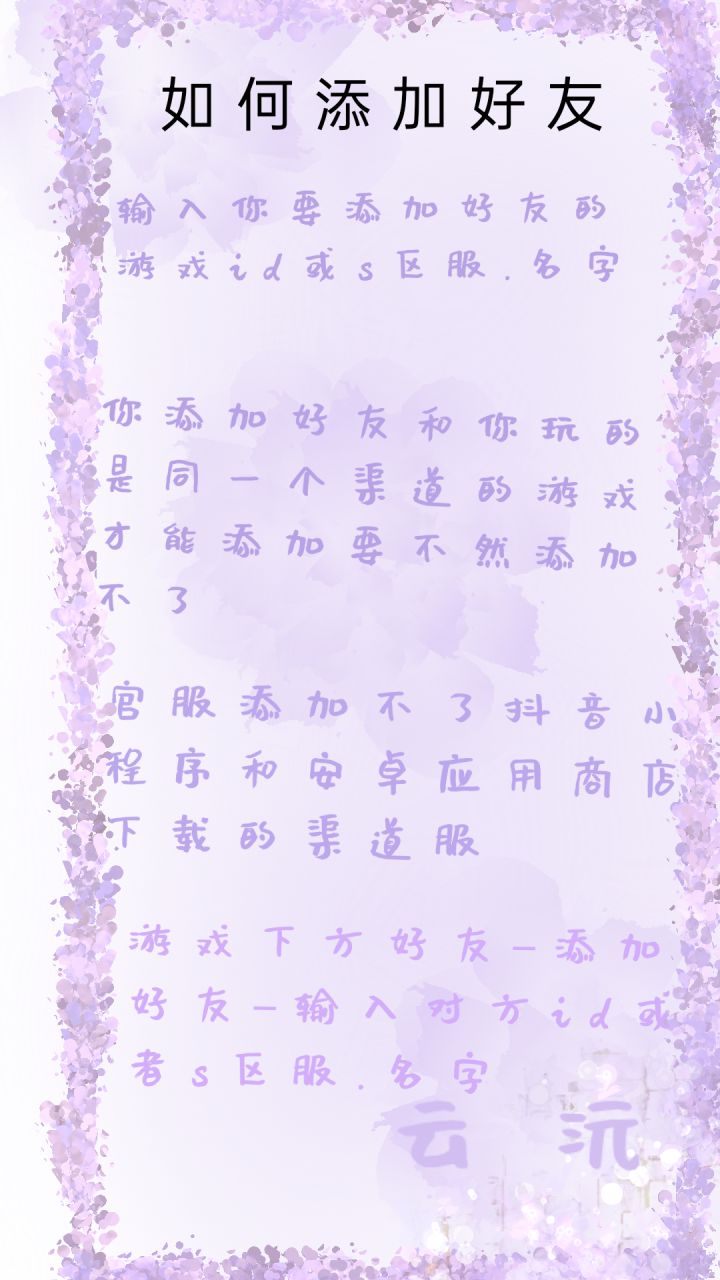 如何添加好友
输入你要添加好友的
游戏id或s区服.名字
你添加好友和你玩的
是同一个渠道的游戏
才能添加要不然添加
不了
官服添加不了抖音小
程序和安卓应用商店
下载的渠道服
游戏下方好友-添加
好友-输入对方id或
者s区服.名字
云沅